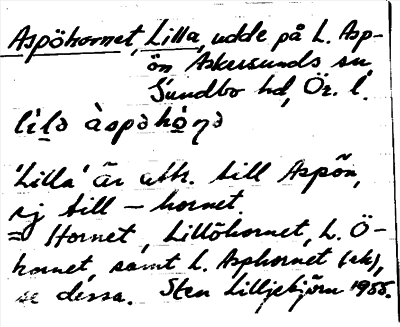 Aspöhornet, Lilla, udde på L. Asp-
ön Askersunds sn
Sundbo hd, Ör. l.
lìlə àspəhò̤ṇə
'Lilla' är attr. till Aspön,
ej till – hornet.
= Hornet, Lillöhornet, L. Ö-
hornet, samt L. Asphornet (ek),
se dessa. Sten Lilljebjörn 1955.